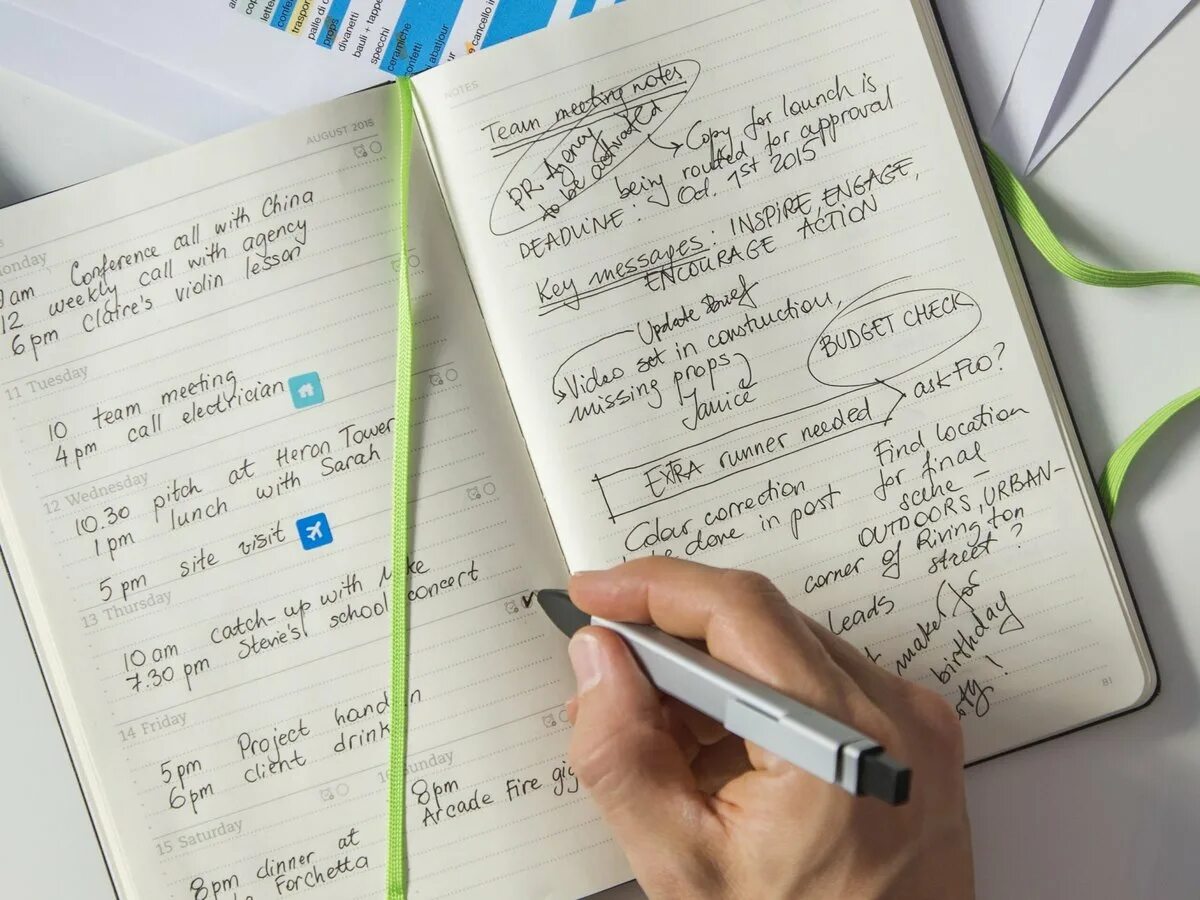 trasporto
palle di
props
divanetti
bauli + tappe
specchi
ceramiche
confetti
abatjour
cancello in
AUGUST 2015
Conference call with China
12 weekly call with agency
6pm Claire's violin lesson
11 Tuesday
10 team meeting
4pm call electrician
12 Wednesday
10.30 pitch at Heron Tower
1pm lunch with Sarah
5pm site visit
13 Thursday
10am catch-up with
7.30 pm Stevie's school concert
14 Friday
5pm Project hand in
6pm client drink
15 Saturday
8pm dinner at
Forchetta
8pm
Arcade Fire gig
NOTES
Team meeting notes
PR Agency
to be activated
Copy for launch is
being routed for approval
DEADLINE: Oct. 1st 2015
Key messages: INSPIRE ENGAGE,
ENCOURAGE ACTION
Update Brief
Video set in construction,
missing props
Janice
BUDGET CHECK
EXTRA runner needed
ask FOO?
Colour correction
done in post
Find location
for final
scene –
OUTDOORS, URBAN-
corner of Rivington
street?
leads
maker for
birthday
81